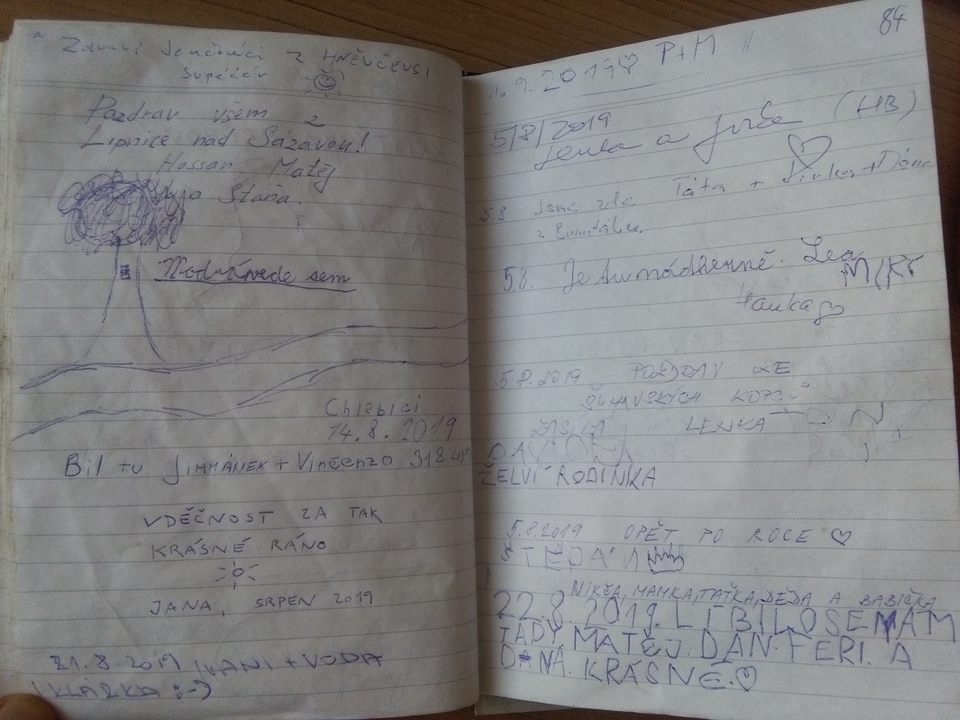 Zdraví z HNĚVČEVSI
Pozdrav všem z
Lipnice nad Sázavou!
Hossan Matěj
Stáňa.
sem
Chlebíci
14.8.2019
Bil tu JIMMÁNEK + Vinčenzo 31.8.
VDĚČNOST ZA TAK
KRÁSNÉ RÁNO
JANA, SRPEN 2019
21.8.2019 IVANI + VODA
KLÁRKA :-)
84
9.2019 ♡ P+M
5/8/2019
Lenka a Jirka (HB)
Táta + + Dána
5.8.
z
5.8. Je tu nádherně. Lea
5.8.2019 POZDRAV ZE
ŠUMAVSKÝCH KOPCŮ
ZASÍLÁ LENKA
DAVID
ŽELVÍ RODINKA
5.8.2019 OPĚT PO ROCE ♡
ŠTĚPÁN
NIKČA, MAMKA, TAŤKA, DĚDA A BABIČKA
22.8.2019. LÍBILO SE NÁM
TADY. MATĚJ. DAN. FERI. A
DANA. KRÁSNÉ. ♡